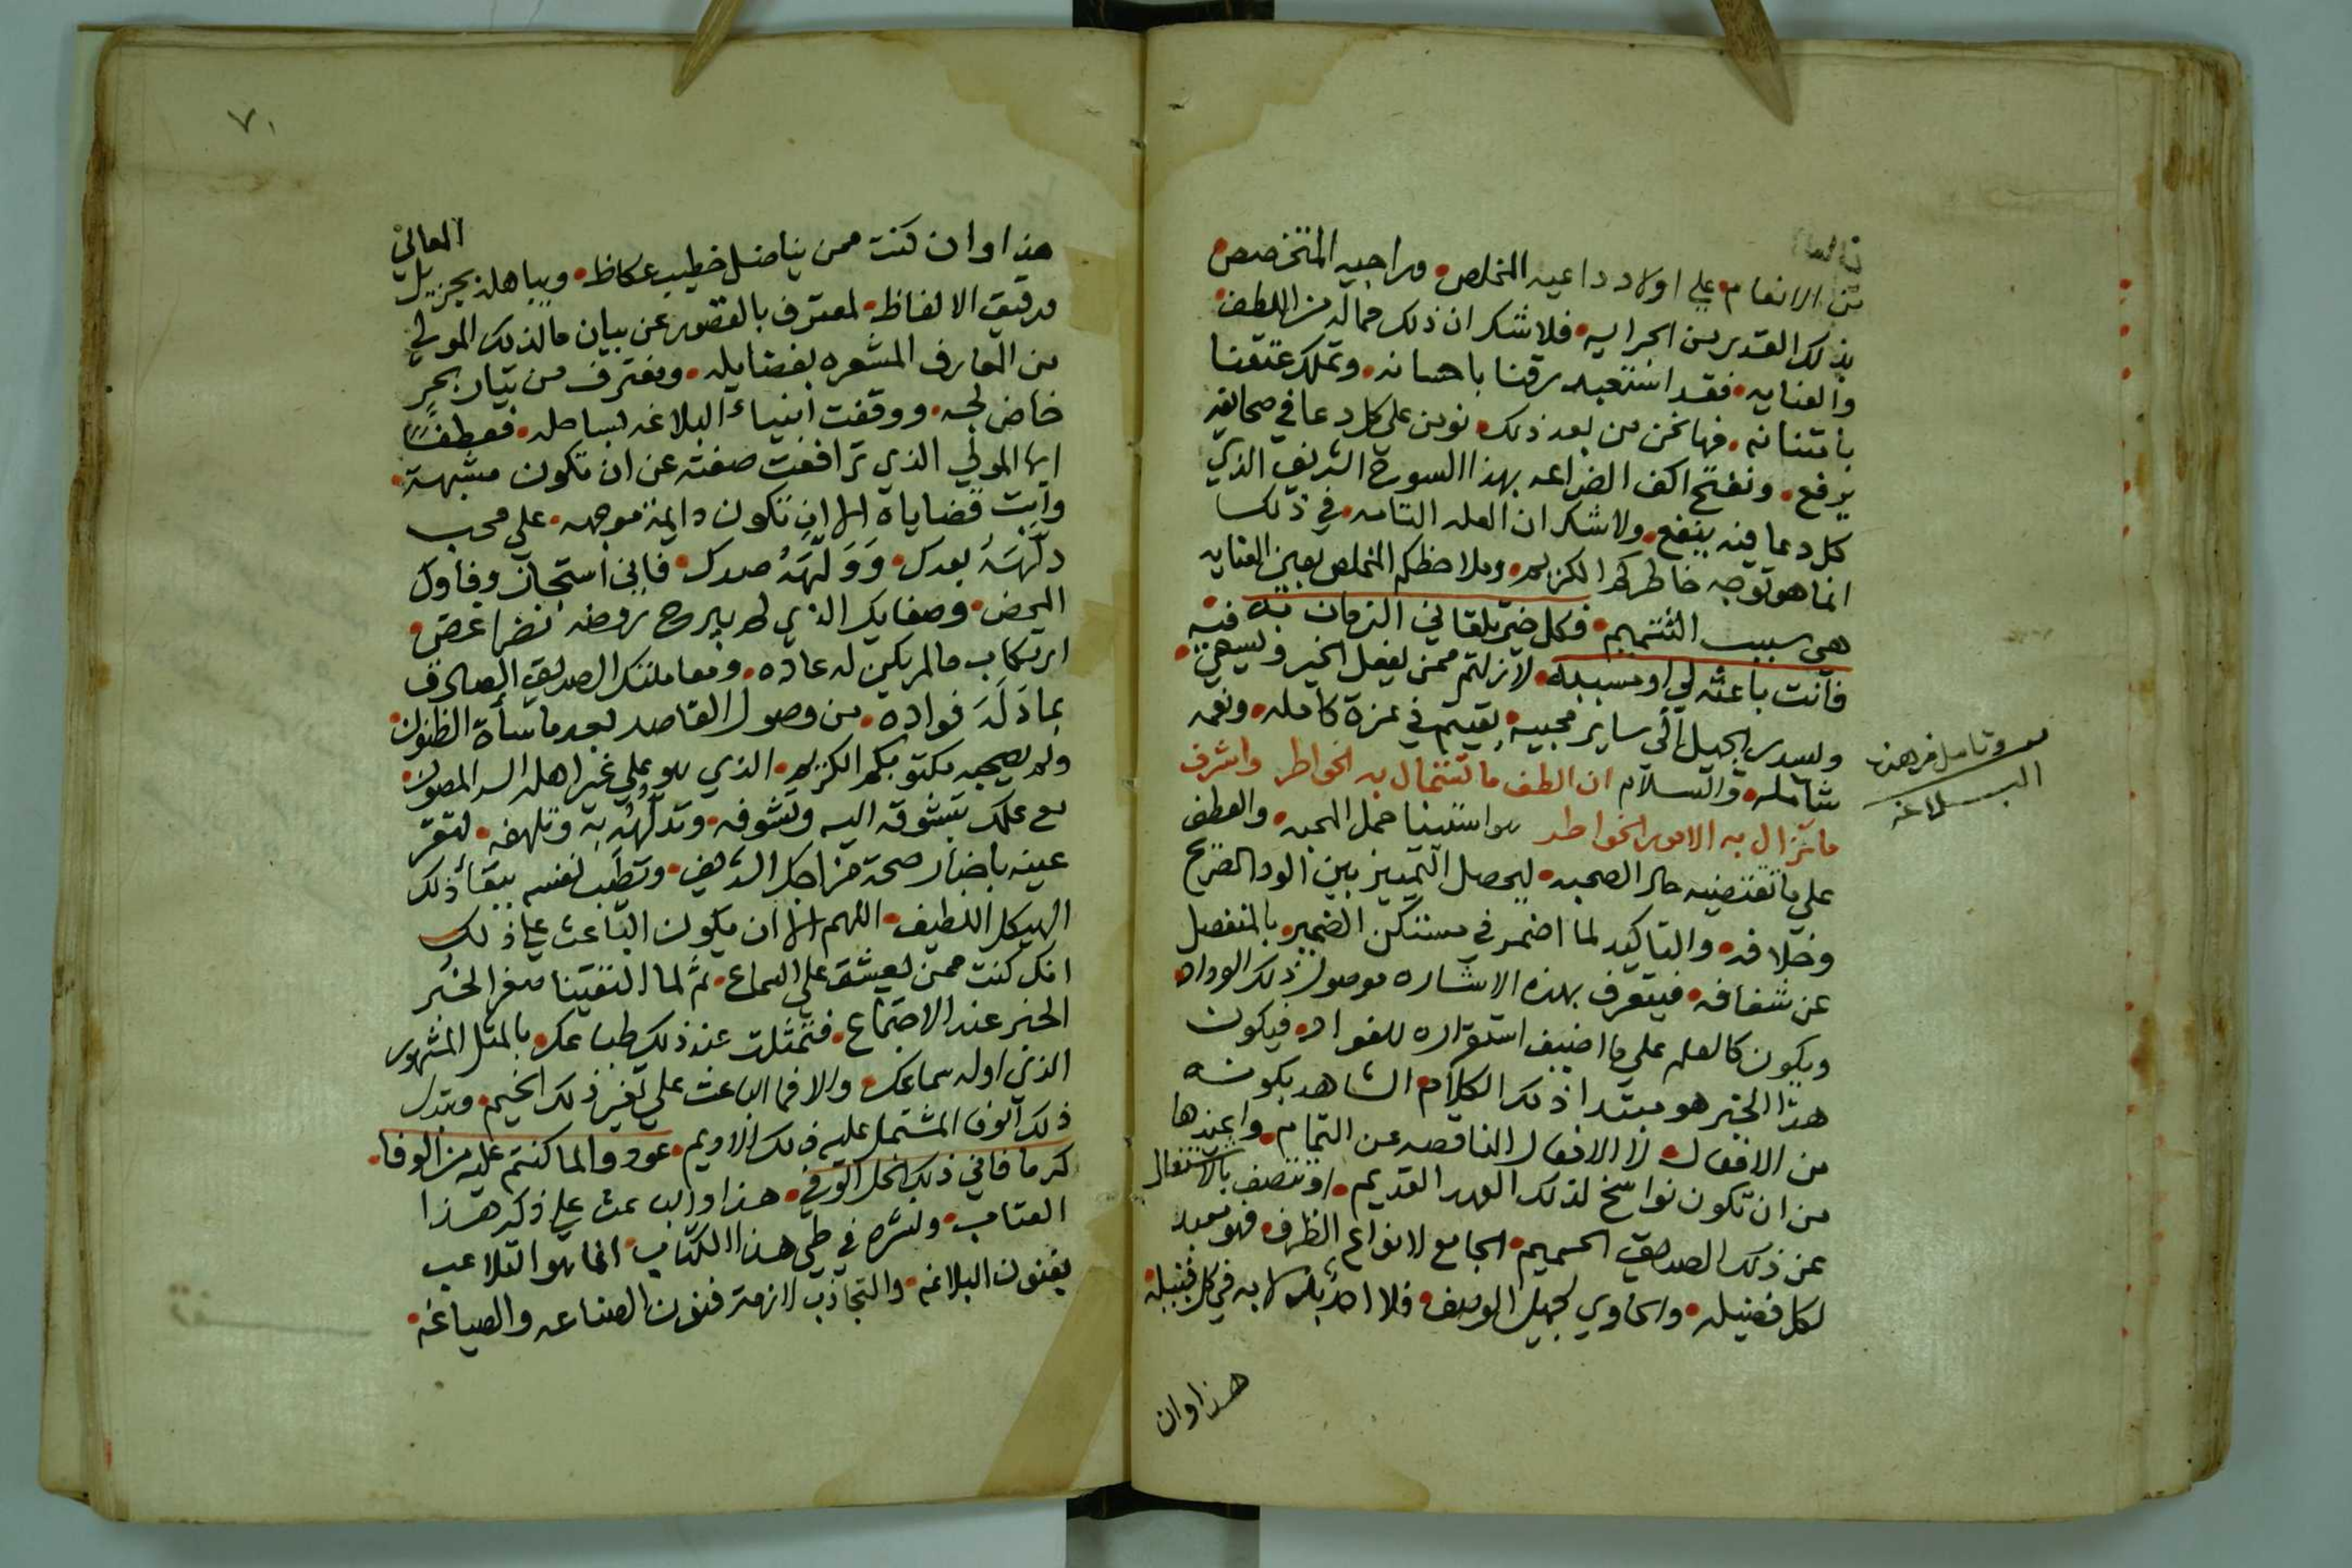 من الانعام علي اولاد داعيه المخلص وراجيه المتخصص
بذلك القدر من الجرايه فلا شك ان ذلك مما له من اللطف
والعنايه فقد استعبد رقنا باحسانه وتملك عتقنا
بامتنانه فها نحن من بعد ذلك نومن علي كل دعا في صحايفه
يرفع ونفتح اكف الضراعه بهذا السوح الشريف الذي
كل دعا فيه ينفع ولا شك ان العله التامه في ذلك
انما هو توجه خاطركم الكريم وملاحظكم المخلص بعين العنايه
هي سبب التتميم فكل خير يلقاني الزمان به
فانت باعثه لي او مسببه لازلتم ممن يفعل الخير
ويسدي الجميل الي ساير محبيه بقيتم في عزة كامله ونعمه
شامله والسلام ان الطف ما تستمال به الخواطر واشرف
ما تزال به الامور الخواطر هو استينا حمل المحبه والعطف
علي ما تقتضيه حال الصحبه ليحصل التمييز بين الود الصريح
وخلافه والتاكيد لما اضمر في مستكن الضمير بالمنفصل
عن شغافه فيتعرف بهذه الاشاره موصول ذلك الوداد
ويكون كالعلم علي ما اضيف استقراره للفواد فيكون
هذا الخبر هو مبتدا ذلك الكلام الشاهد بكونه
من الافعال لا الافعال الناقصه عن التمام واعيذها
من ان تكون نواسخ لذلك العهد القديم او تتصف بالانتقال
عن ذلك الصديق الحميم الجامع لانواع الظرف فهو معيد
لكل فضيله والحاوي لجميل الوصف فلا احد في كل قبيله
هذا وان
وتامل في هذه
البلاغه
٧١
هذا وان كنت ممن يناضل خطيب عكاظ ويباهله بجزيل المعاني
ورقيق الالفاظ لمعترف بالقصور عن بيان ما لذلك المولي
من المعارف المشعره بفضايله ومغترف من تيار بحر
خاض لجه ووقفت انبياء البلاغه بساحله فعطفًا
ايها المولي الذي ترافعت صفته عن ان تكون مشبهة
وابت قضاياه الا ان تكون دايمة موجهه علي محب
دلهته بعدك وولهته صدك فاني استجاز وفاوك
المحض وصفايك الذي لم يبرح روضه نضرا غض
ارتكاب ما لم يكن له عاده ومعاملتك الصديق الصادق
بما دله فواده من وصول القاصد بعد ما ساة الظنون
ولم يصحبه مكتوبكم الكريم الذي هو علي غير اهله السر المصون
مع علمك بتشوقه اليه وتشوفه وتدلهه به وتلهفه لتقر
عينه باخبار صحة مزاجك الشريف وتطيب نفسه ببقاء ذلك
الهيكل اللطيف اللهم الا ان يكون الباعث علي ذلك
انك كنت ممن يعشق علي السماع ثم لما التقينا صغر الخبر
الخبر عند الاجتماع فتمثلت عند ذلك طباعك بالمثل المشهور
الذي اوله سماعك والا فما الباعث علي تغير ذلك الخيم وتبدل
ذلك الوفا المشتمل عليه ذلك الاديم عودوا لما كنتم عليه من الوفا
كرما فاني ذلك الخل الوفي هذا والباعث علي ذكر هذا
العتاب ونشره في طي هذا الكتاب انما هو التلاعب
بفنون البلاغه والتجاذب لازمة فنون الصناعه والصياغه